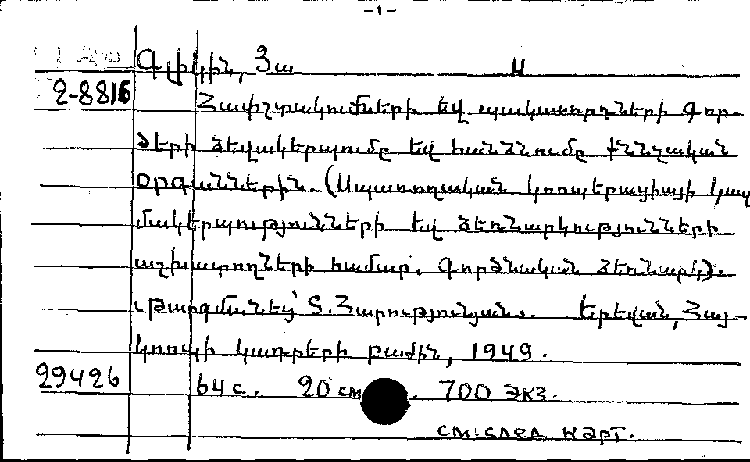 -1-
Գլիկին, Յա
Ա
2-8816
Հափշտակումների եվ պակասորդների գոր-
ծերի ձեվակերպումը եվ հանձնումը քննչական
օրգաններին. (Սպառողական կոոպերացիայի կազ
մակերպությունների եվ ձեռնարկությունների
աշխատողների համար. Գործնական ձեռնարկ).
Թարգմանեց՝ Տ. Հարությունյան. Երեվան, Հայ-
կոոպի կադրերի բաժին, 1949.
29426
64 с. 20 см. 700 экз.
см. след карт.